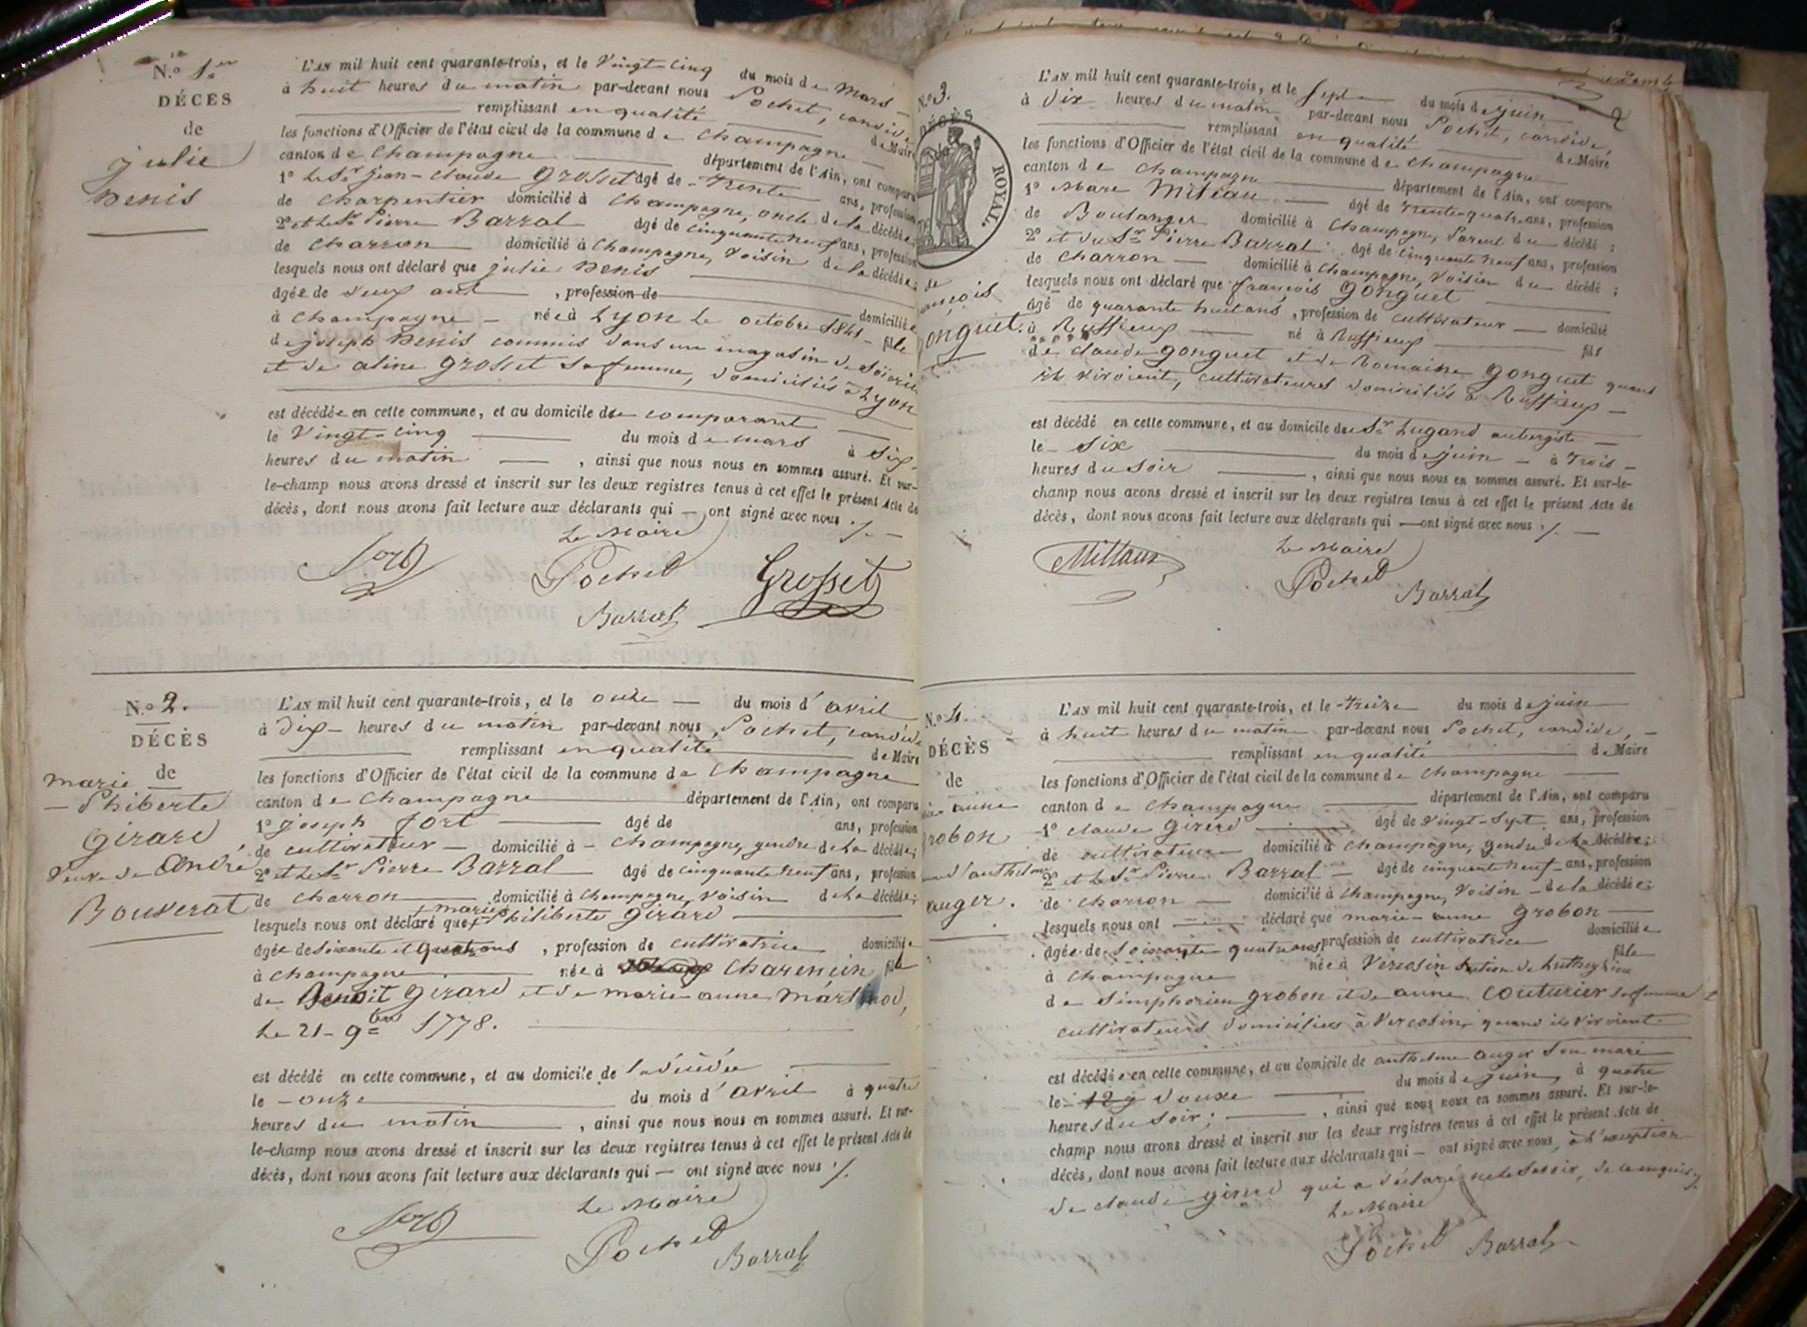 N.º 1.er
DÉCÈS
de
julie
Denis
L'AN mil huit cent quarante-trois, et le Vingt-cinq du mois de Mars
à huit heures du matin par-devant nous Pochet, candide
remplissant en qualité de Maire
les fonctions d'Officier de l'état civil de la commune de Champagne
canton de Champagne département de l'Ain, ont comparu
1º le Sr Jean-claude Grosset âgé de trente ans, profession
de charpentier domicilié à Champagne, oncle de la décédée;
2º et le Sr Pierre Barral âgé de cinquante neuf ans, profession
de charron domicilié à Champagne, Voisin de la décédée;
lesquels nous ont déclaré que julie Denis
âgée de deux ans , profession de
à Champagne domiciliée
née à Lyon le octobre 1841 fille
de joseph Denis commis dans un magasin de Soieries
et de aline Grosset sa femme, domiciliés à Lyon
est décédée en cette commune, et au domicile du comparant
le Vingt-cinq du mois de mars à Six
heures du matin , ainsi que nous nous en sommes assuré. Et sur-
le-champ nous avons dressé et inscrit sur les deux registres tenus à cet effet le présent Acte de
décès, dont nous avons fait lecture aux déclarants qui — ont signé avec nous ./.
Le Maire
Pochet
Grosset
Barral
N.º 2.
DÉCÈS
de
marie
Philiberte
Girard
Veuve de André
Bouverat
L'AN mil huit cent quarante-trois, et le onze du mois d'avril
à Dix heures du matin par-devant nous Pochet, candide
remplissant en qualité de Maire
les fonctions d'Officier de l'état civil de la commune de Champagne
canton de Champagne département de l'Ain, ont comparu
1º joseph fort âgé de ans, profession
de cultivateur domicilié à Champagne, gendre de la décédée;
2º et le Sr Pierre Barral âgé de cinquante neuf ans, profession
de charron domicilié à Champagne, Voisin de la décédée;
lesquels nous ont déclaré que marie Philiberte Girard
âgée de Soixante et quatre ans , profession de cultivatrice domiciliée
à Champagne née à Charencin fille
de Benoit Girard et de marie anne Martinod,
le 21 9bre 1778.
est décédé en cette commune, et au domicile de la décédée
le onze du mois d'avril à quatre
heures du matin , ainsi que nous nous en sommes assuré. Et sur-
le-champ nous avons dressé et inscrit sur les deux registres tenus à cet effet le présent Acte de
décès, dont nous avons fait lecture aux déclarants qui — ont signé avec nous ./.
Le Maire
Pochet
Barral
N.º 3.
DÉCÈS
ROYAL.
de
onguet.
L'AN mil huit cent quarante-trois, et le Sept du mois de juin
à Dix heures du matin par-devant nous Pochet, candide,
remplissant en qualité de Maire
les fonctions d'Officier de l'état civil de la commune de Champagne
canton de Champagne département de l'Ain, ont comparu
1º Marc Miteau âgé de trente-quatre ans, profession
de Boulanger domicilié à Champagne, Parent du décédé;
2º et du Sr Pierre Barral âgé de cinquante neuf ans, profession
de charron domicilié à Champagne, Voisin du décédé;
lesquels nous ont déclaré que françois Gonguet
âgé de quarante huit ans, profession de cultivateur domicilié
à Ruffieux né à Ruffieux fils
de claude Gonguet et de Romaine Gonguet quand
ils vivoient, cultivateurs domiciliés à Ruffieux
est décédé en cette commune, et au domicile du Sr Lugand aubergiste
le Six du mois de juin à trois
heures du soir , ainsi que nous nous en sommes assuré. Et sur-le-
champ nous avons dressé et inscrit sur les deux registres tenus à cet effet le présent Acte de
décès, dont nous avons fait lecture aux déclarants qui — ont signé avec nous ./.
Mittaux
Le Maire
Pochet
Barral
N.º 4.
DÉCÈS
de
anne
robon
d'anthelme
auger.
L'AN mil huit cent quarante-trois, et le treize du mois de juin
à huit heures du matin par-devant nous Pochet, candide,
remplissant en qualité de Maire
les fonctions d'Officier de l'état civil de la commune de Champagne
canton de Champagne département de l'Ain, ont comparu
1º claude Girerd âgé de vingt-sept ans, profession
de cultivateur domicilié à Champagne, gendre de la décédée;
2º et le Sr Pierre Barral âgé de cinquante neuf ans, profession
de charron domicilié à Champagne, Voisin de la décédée;
lesquels nous ont déclaré que marie-anne Grobon
âgée de soixante quatre ans profession de cultivatrice domiciliée
à Champagne née à Vercosin section de Luthezieu fille
de Simphorien Grobon et de anne Couturier sa femme
cultivateurs domiciliés à Vercosin, quand ils vivoient
est décédée en cette commune, et au domicile de anthelme auger son mari
le douze du mois de juin, à quatre
heures du soir; , ainsi que nous nous en sommes assuré. Et sur-le-
champ nous avons dressé et inscrit sur les deux registres tenus à cet effet le présent Acte de
décès, dont nous avons fait lecture aux déclarants qui — ont signé avec nous, à l'exception
de claude Girerd qui a déclaré ne le savoir, de ce requis ./.
Le Maire
Pochet Barral